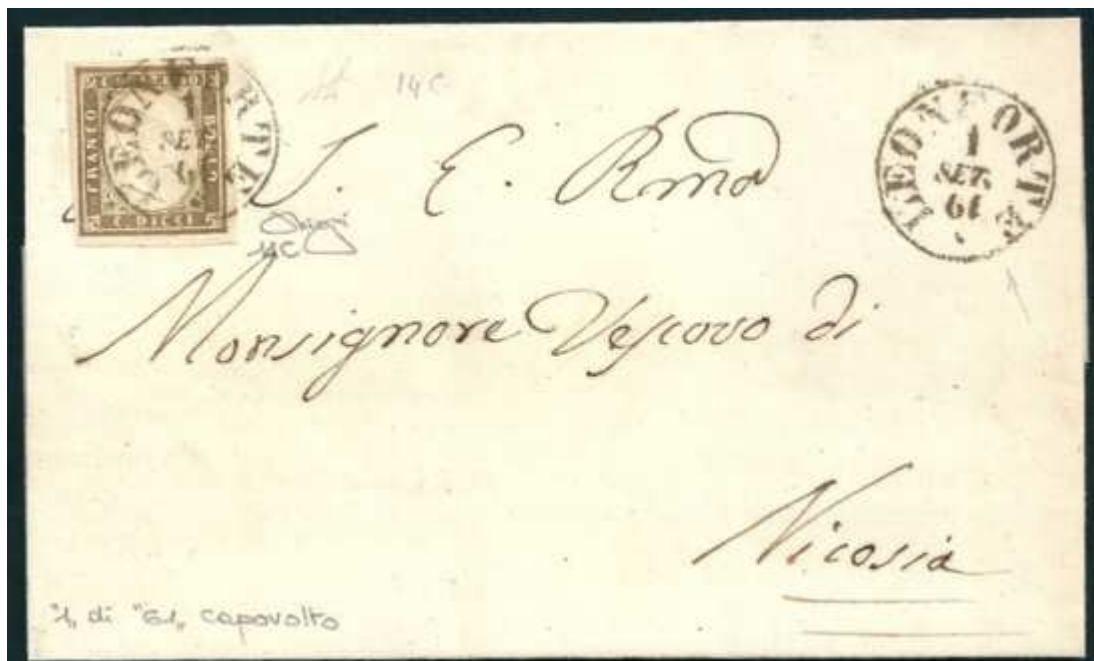 FRANCO
BOLLO
C. DIECI
LEONFORTE
1
SET.
61
14C
14C
S. E. Rma
LEONFORTE
1
SET.
61
Monsignore Vescovo di
Nicosia
"1" di "61" capovolto